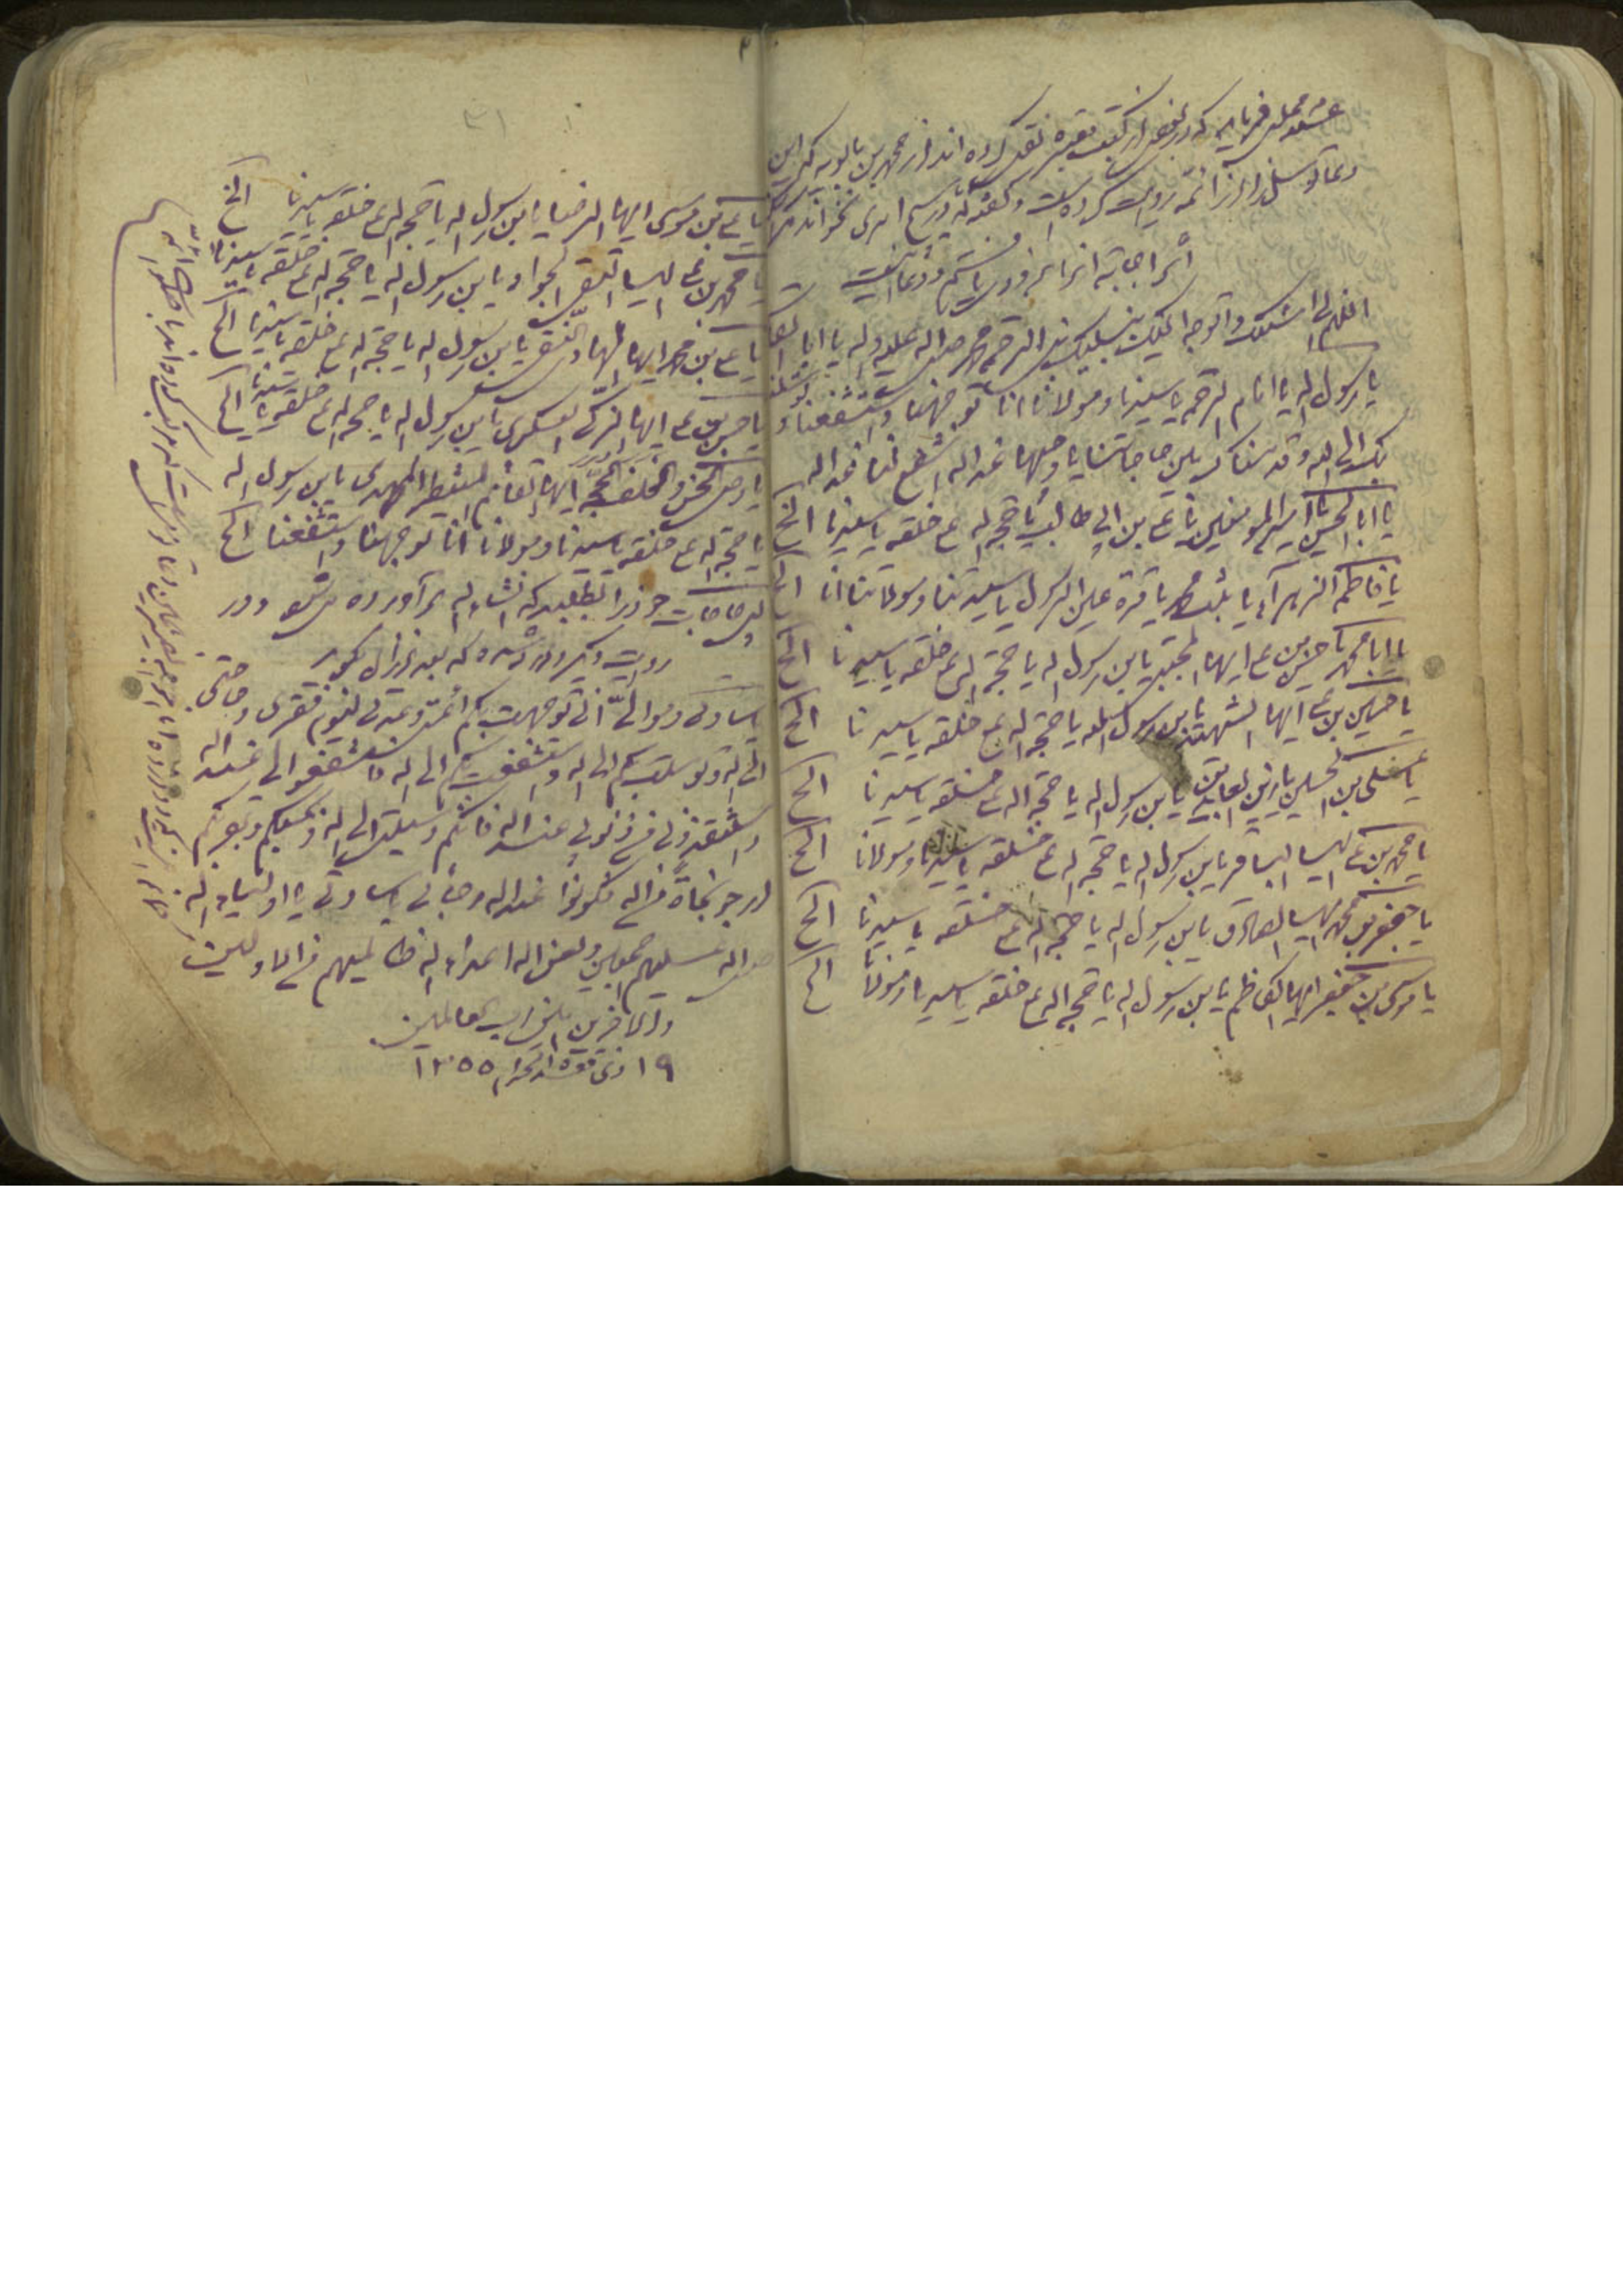 علامه مجلسی فرماید که در بعضی از کتب معتبره نقل کرده اند از محمد بن بابویه که این
دعا توسل را از ائمه روایت کرده است و گفته که در هیچ امری نخواندم مگر
اثر اجابت آنرا بزودی یافتم و دعا اینست
اللهم انی اسئلک و اتوجه الیک بنبیک نبی الرحمه محمد صلی اله علیه و اله یا ابا القاسم
یا رسول اله یا امام الرحمه یا سیدنا و مولانا انا توجهنا و استشفعنا و توسلنا
بک الی الله و قدمناک بین یدی حاجاتنا یا وجیها عند اله اشفع لنا عند اله
یا ابا الحسن یا امیر المومنین یا علی بن ابی طالب یا حجه اله علی خلقه یا سیدنا الخ
یا فاطمه الزهرآء یا بنت محمد یا قرة عین الرسول یا سیدتنا و مولاتنا انا الخ
یا ابا محمد یا حسن بن علی ایها المجتبی یابن رسول اله یا حجة اله علی خلقه یا سیدنا الخ
یا حسین بن علی ایها الشهید یابن رسول الله یا حجه اله علی خلقه یا سیدنا الخ
یا علی بن الحسین یا زین العابدین یابن رسول اله یا حجه اله علی خلقه یا سیدنا الخ
یا محمد بن علی ایها الباقر یابن رسول اله یا حجه اله علی خلقه یا سیدنا و مولانا الخ
یا جعفر بن محمد ایها الصادق یابن رسول اله یا حجه اله علی خلقه یا سیدنا الخ
یا موسی بن جعفر ایها الکاظم یابن رسول اله یا حجه اله علی خلقه یا سیدنا و مولانا الخ
۳۱
یا علی بن موسی ایها الرضا یابن رسول اله یا حجه اله علی خلقه یا سیدنا الخ
یا محمد بن علی ایها التقی الجواد یابن رسول اله یا حجه اله علی خلقه یا سیدنا
یا علی بن محمد ایها الهادی النقی یابن رسول اله یا حجه اله علی خلقه یا سیدنا الخ
یا حسن بن علی ایها الزکی العسکری یابن رسول اله یا حجه اله علی خلقه یا سیدنا الخ
یا وصی الحسن و الخلف الحجه ایها القائم المنتظر المهدی یابن رسول اله
یا حجه اله علی خلقه یا سیدنا و مولانا انا توجهنا و استشفعنا الخ
پس حاجات خود را بطلبید که انشاء اله برآورده میشود و در
روایت دیگر وارد شده که بعد از آن بگوید
یا سادتی و موالی انی توجهت بکم ائمتی و عدتی لیوم فقری و حاجتی
الی اله و توسلت بکم الی اله و استشفعت بکم الی اله فاستشفعوا لی عند اله
و استنقذونی من ذنوبی عند اله فانکم وسیلتی الی اله و بحبکم و بقربکم
ارجو نجاة من اله فکونوا عند اله رجائی یا سادتی یا اولیاء اله
صلی اله علیهم اجمعین و لعن اله اعداء اله ظالمیهم من الاولین
و الاخرین امین رب العالمین
۱۹ ذی قعده الحرام ۱۳۵۵